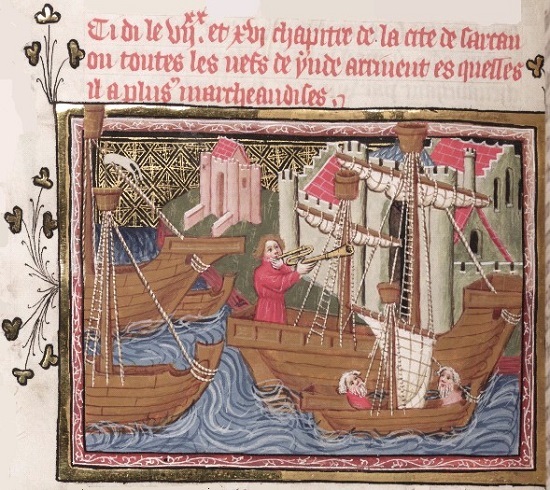 Ci di le vij^xx. et xvi chapitre de la cite de sartan
ou toutes les nefs de ynde arriuent es quelles
il a plus's marcheandises